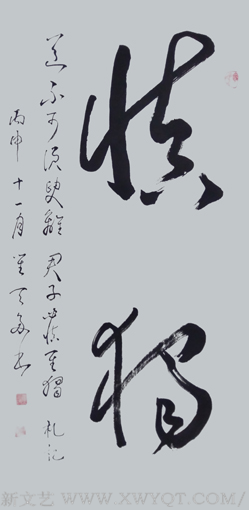 慎獨
道不可須臾離 君子必慎其獨 礼記
丙申 十一月 書
新文艺 (WWW.XWYQT.COM)